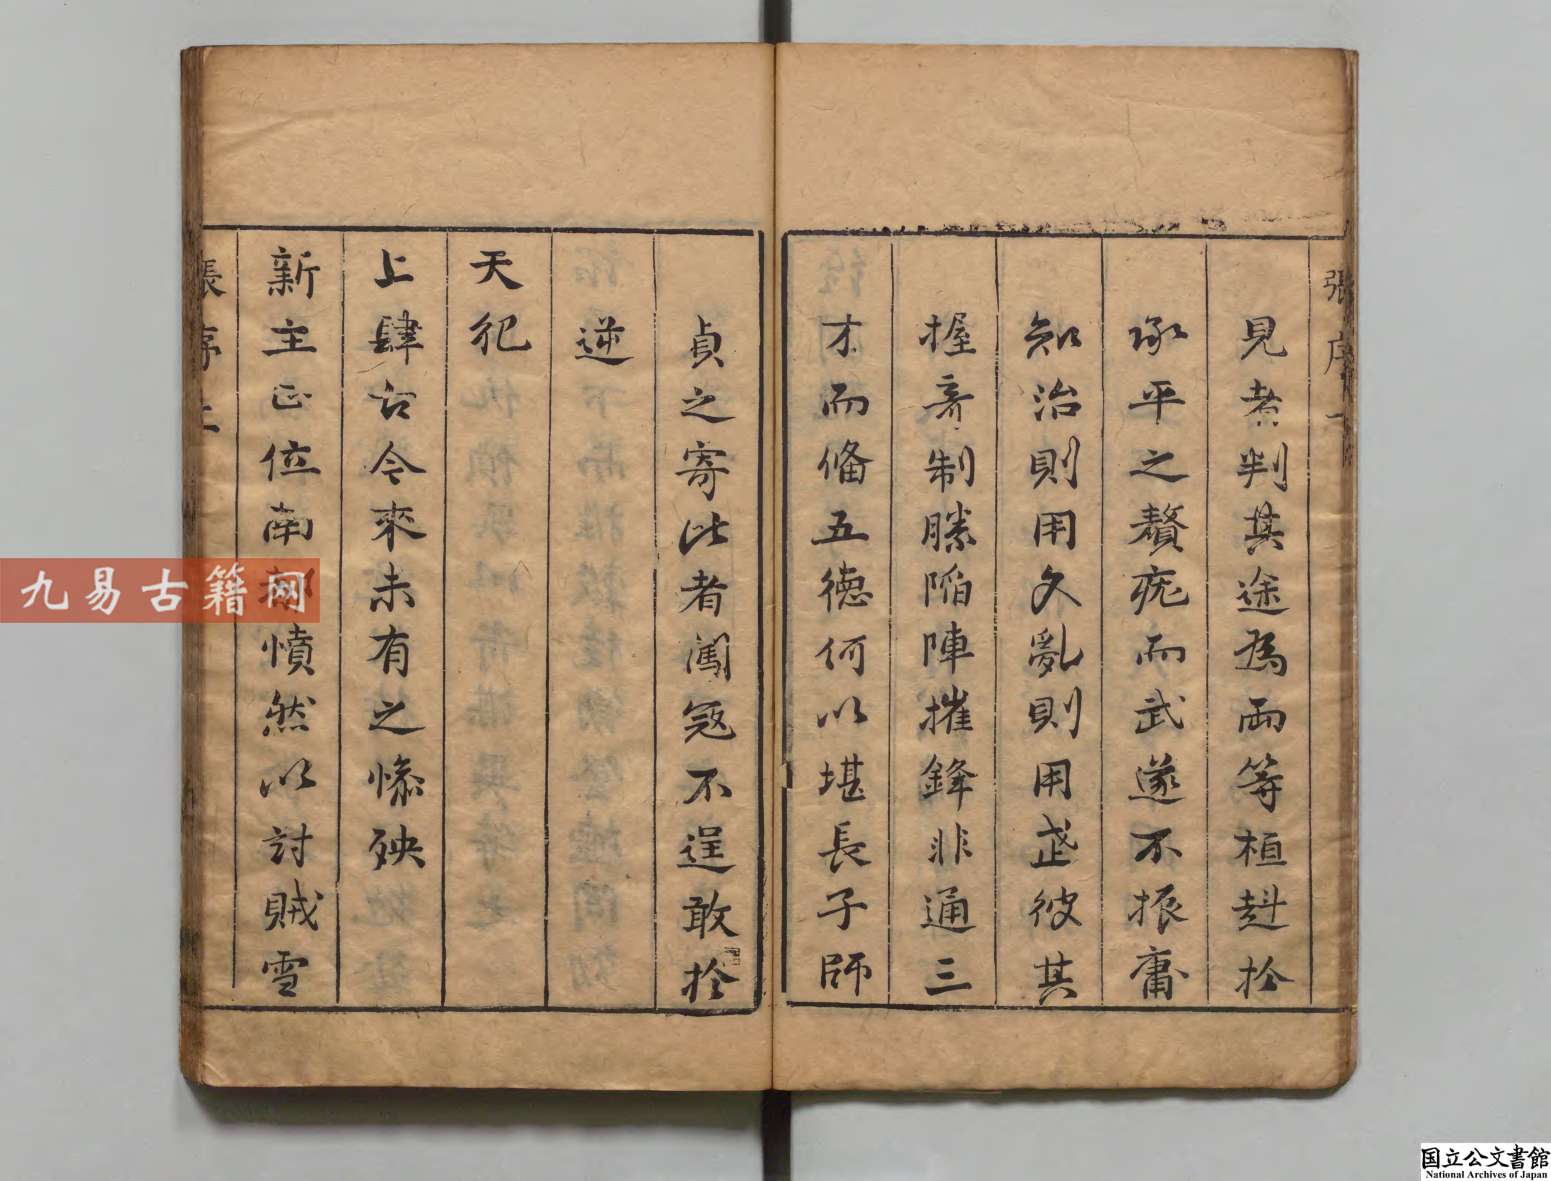 張序
見者判其途為兩等植䞘扵
承平之贅疣而武遂不振庸
知治則用文亂則用武彼其
握竒制勝陷陣摧鋒非通三
才而俻五德何以堪長子師
貞之寄比者闖冦不逞敢扵
逆
天犯
上肆古今來未有之慘殃
新主正位南都憤然以討賊雪
張序
九易古籍网
国立公文書館
National Archives of Japan